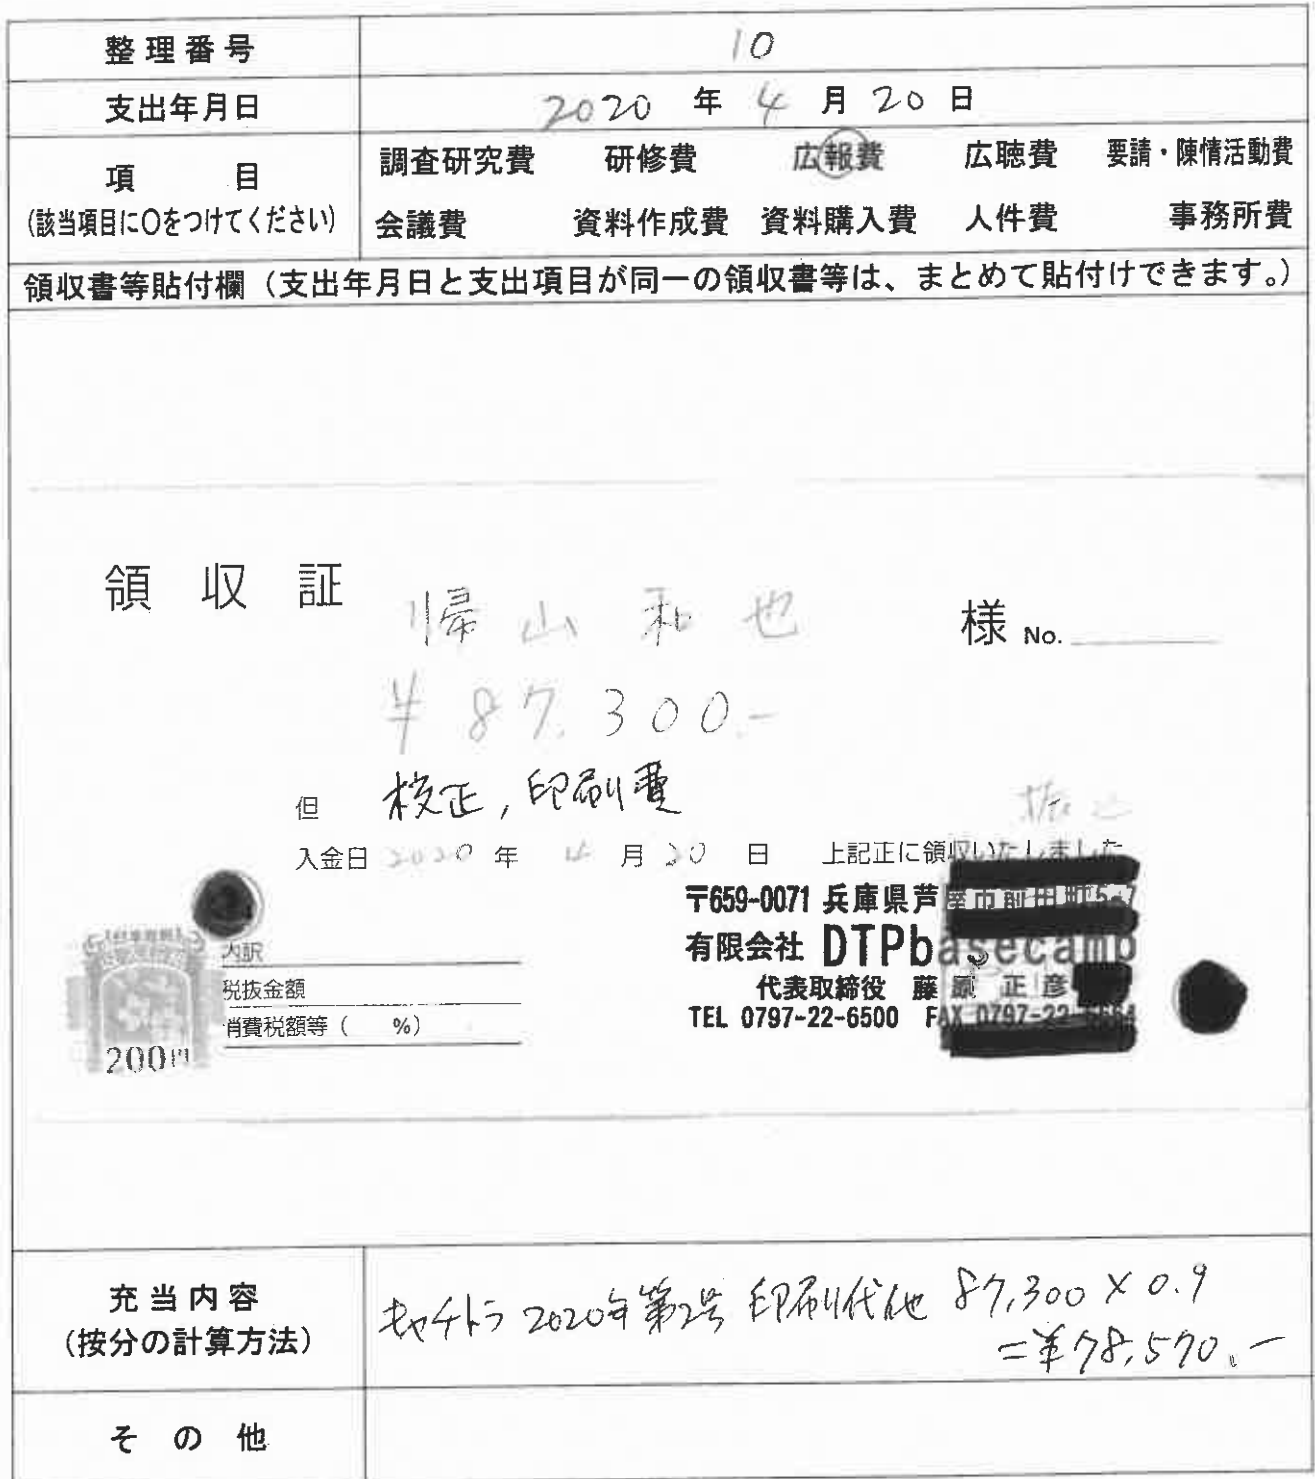 整理番号 10
支出年月日 2020 年 4 月 20 日
項 目
(該当項目に〇をつけてください)
調査研究費 研修費 広報費 広聴費 要請・陳情活動費
会議費 資料作成費 資料購入費 人件費 事務所費
領収書等貼付欄（支出年月日と支出項目が同一の領収書等は、まとめて貼付けできます。）
領 収 証 帰山和也 様 No.
¥87,300.-
但 校正, 印刷費
振込
入金日 2020 年 4 月 20 日 上記正に領収いたしました
〒659-0071 兵庫県芦屋市前田町5-7
有限会社 DTPbasecamp
代表取締役 藤 正彦
TEL 0797-22-6500 FAX 0797-22-
内訳
税抜金額
消費税額等 ( %)
200円
充当内容
(按分の計算方法)
キャチトラ 2020年第2号 印刷代他 87,300 × 0.9
=¥78,570.-
その他